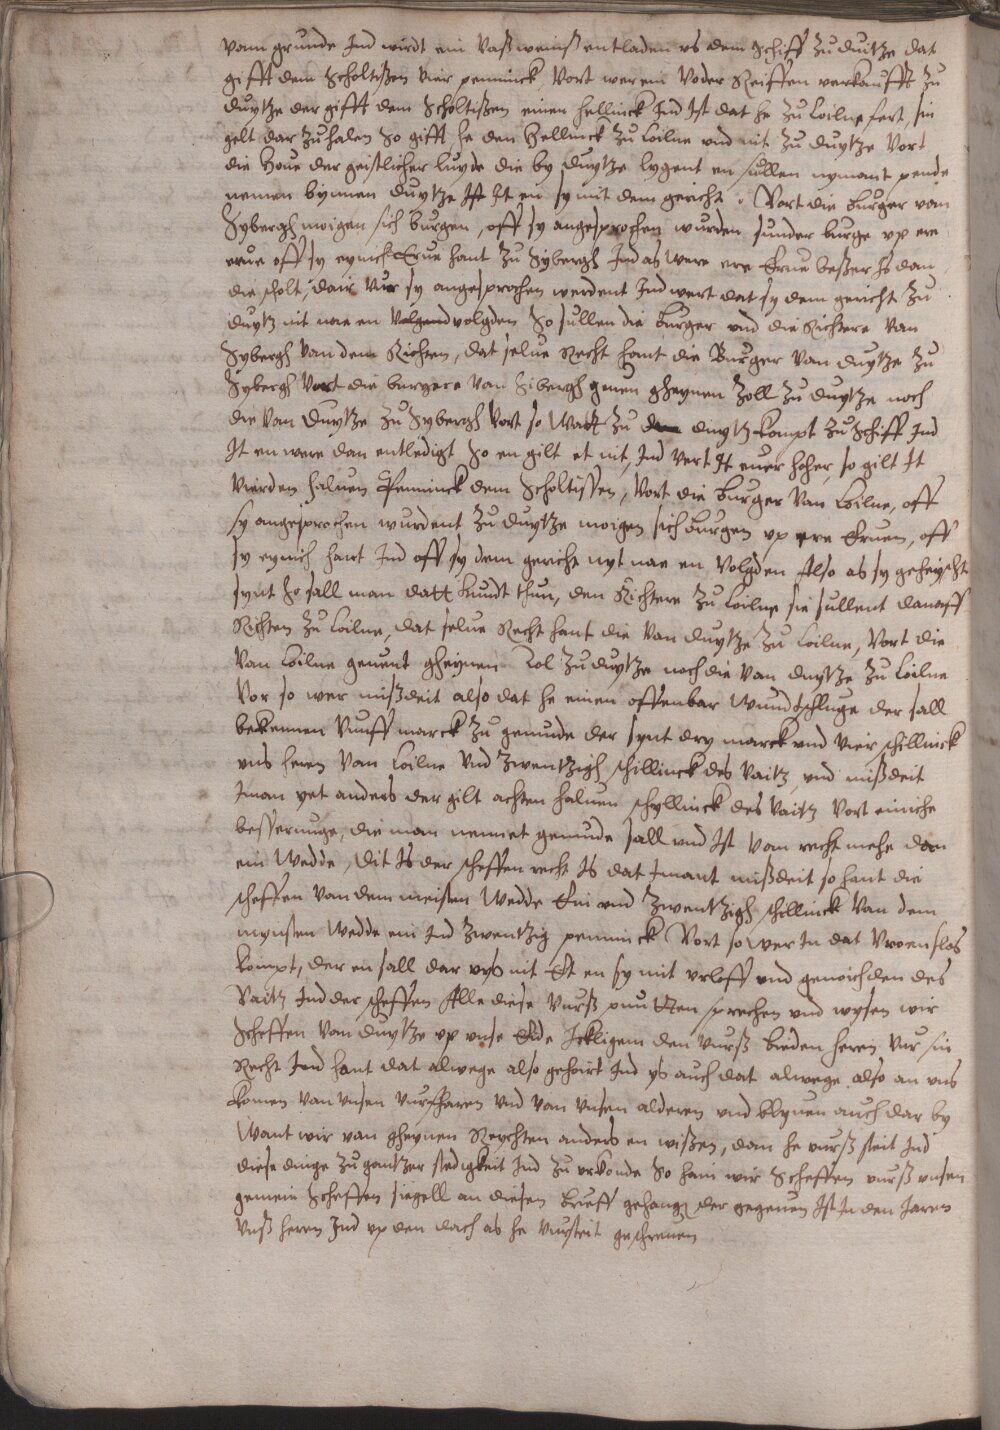 vam grunde Ind wirdt ein vaß weinß entladen vs dem Schiff zu duitze dat
gifft dem Scholtißen vier penninck, Vort wer ein Voder Reiffen verkaufft zu
duytze der gifft dem Scholtißen einen hellinck Ind Ist dat he zu Coilne fert, sin
gelt dar zu halen So gifft he den Hellinck zu Coilne vnd nit zu duytze Vort
die Houe der geistlicher luyde die by duytze lygent en sullen nymant pende
nemen bynnen duytze Ist It en sy mit dem gericht. Vort die Burger vam
Sybergh moigen sich burgen, off sy angesprochen wurden sunder burge vp ere
erue off sy eynich Erue hant zu Sybergh Ind as were ere Erue beßer Is dan
die scholt, dair vur sy angesprochen werdent Ind wert dat sy dem gericht zu
duytz nit nae en volgden So sullen die burger vnd die Richtere van
Sybergh van dem Richten, dat selue Recht hant die Burger van duytze zu
Sybergh Vort die burgere van Sibergh geuen gheynen Zoll zu duytze noch
die van duytze zu Sybergh Vort so watt zu duytz kompt zu Schiff Ind
It en were dan entledigt So en gilt et nit, Ind vert It euer hoher, so gilt It
vierden haluen Penninck dem Scholtissen, Vort die burger van Coilne, off
sy angesprochen wurdent zu duytze moigen sich burgen vp ere Eruen, off
sy eynich hant Ind off sy dem gericht nyt nae en volgden Also as sy geheischt
synt So sall man datt kundt thun, den Richtere zu Coilne sie sullent danaff
Richten zu Coilne, dat selue Recht hant die van duytze zu Coilne, Vort die
van Coilne geuent gheynen Zol zu duytze noch die van duytze zu Coilne
Vor so wer mißdeit also dat he einen offenbar wundt schluge der sall
bekennen vunff marck zu gemude der synt dry marck vnd vier schillinck
vns heren van Coilne vnd zwentzigh schillinck des vaitz, vnd mißdeit
Iman yet anders der gilt achten haluen schyllinck des vaitz Vort einiche
bessernuge, die man nennet gemude sall vnd Ist van recht mehe dan
ein wedde, Dit Is der scheffen recht Is dat Imant mißdeit so hant die
scheffen van dem meisten wedde Ein vnd zwentzigh schillinck van dem
mynsten wedde ein Ind zwentzig penninck Vort so wer In dat vroenslos
kompt, der en sall dar vyß nit Et en sy mit vrloff vnd gewichden des
vaitz Ind der scheffen Alle diese vurß puntten sprechen vnd wysen wir
Scheffen van duytze vp vnse Eide Itkligem den vurß beiden heren vur sin
Recht Ind hant dat alwege also gehoirt Ind ys auch dat alwege also an vns
komen van vnsen vurffaren vnd van vnsen alderen vnd blyuen auch dar by
want wir van gheynen Reychten anders en wißen, dan he vurß steit Ind
diese dinge zu gantzer stedigkeit Ind zu vrkonde So hain wir Scheffen vurß vnsen
gemein Scheffen siegell an diesen brieff gehangen der gegeuen Ist In den Iaren
vnß heren Ind vp den dach as he vursteit geschreuen